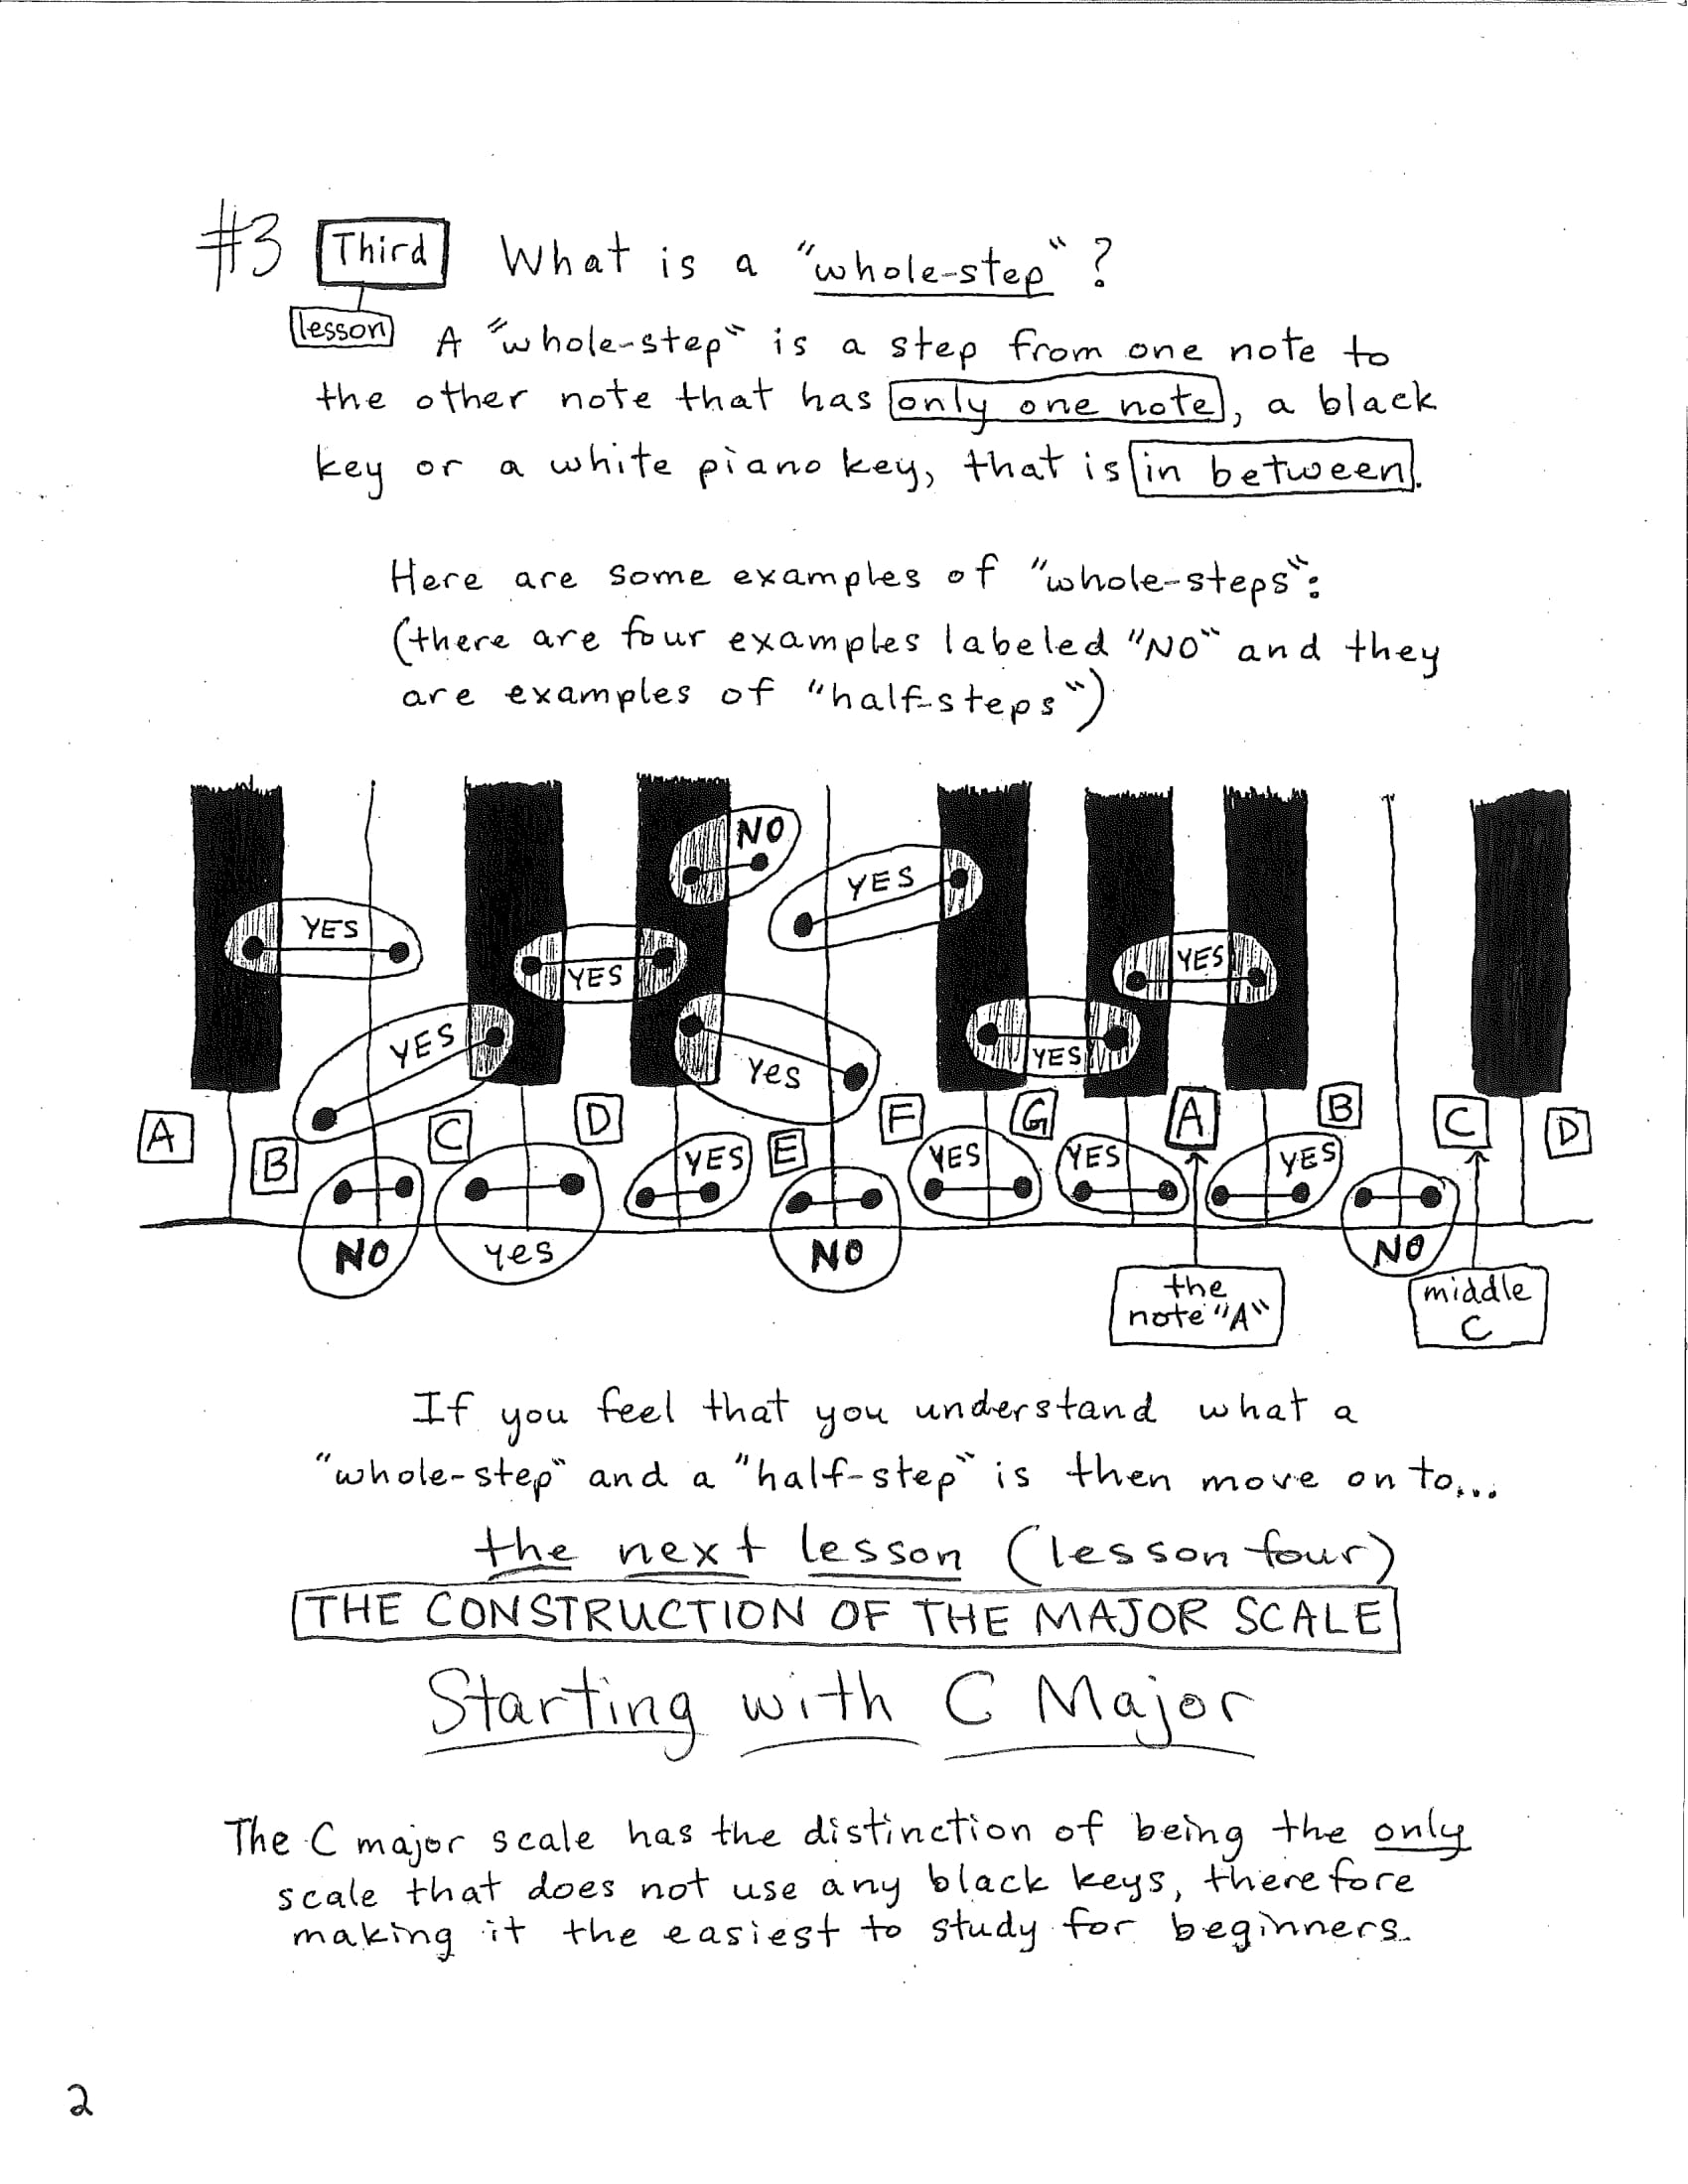 #3 Third What is a "whole-step"?
lesson A "whole-step" is a step from one note to
the other note that has only one note, a black
key or a white piano key, that is in between.
Here are some examples of "whole-steps":
(there are four examples labeled "NO" and they
are examples of "half-steps")
NO
YES
YES
YES
YES
YES
YES
YES
Yes
A
B
C
D
E
F
G
A
B
C
D
YES
YES
YES
YES
NO
Yes
NO
NO
the
note "A"
middle
C
If you feel that you understand what a
"whole-step" and a "half-step" is then move on to...
the next lesson (lesson four)
THE CONSTRUCTION OF THE MAJOR SCALE
Starting with C Major
The C major scale has the distinction of being the only
scale that does not use any black keys, therefore
making it the easiest to study for beginners.
2